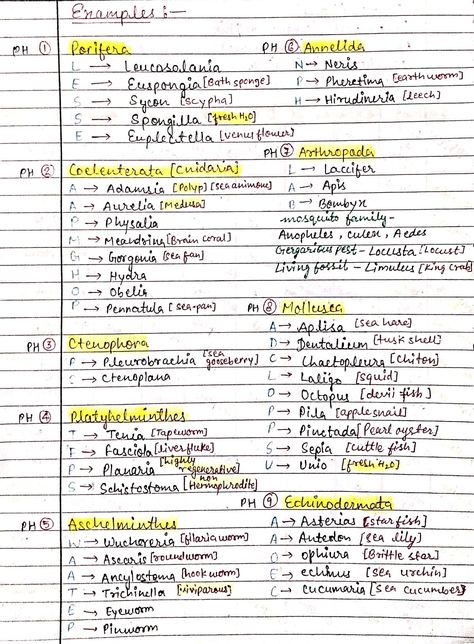 Examples :-
PH ① Porifera
L → Leucosolania
E → Euspongia [Bath sponge]
S → Sycon [Scypha]
S → Spongilla [fresh H2O]
E → Euplectella [venus flower]
PH ② Coelenterata [Cnidaria]
A → Adamsia [Polyp] [Sea animone]
A → Aurelia [Medusa]
P → Physalia
M → Meandrina [Brain coral]
G → Gorgonia [Sea fan]
H → Hydra
O → Obelia
P → Pennatula [Sea-pan]
PH ③ Ctenophora
P → Pleurobrachia [Sea gooseberry]
C → Ctenoplana
PH ④ Platyhelminthes
T → Tenia [Tapeworm]
F → Fasciola [liverfluke]
P → Planaria [highly regenerative]
S → Schictostoma [non Hermophrodite]
PH ⑤ Aschelminthes
W → Wuchereria [filaria worm]
A → Ascaris [roundworm]
A → Ancylostoma [hook worm]
T → Trichinella [viviparous]
E → Eyeworm
P → Pinworm
PH ⑥ Annelida
N → Neris
P → Pheretima [earth worm]
H → Hirudineria [leech]
PH ⑦ Arthropada
L → Laccifer
A → Apis
B → Bombyx
mosquito family-
Anopheles, Culex, Aedes
Gergarious pest - Locusta [Locust]
Living fossil - Limulus [King Crab]
PH ⑧ Mollusca
A → Aplisa [Sea hare]
D → Dentalium [tusk shell]
C → Chaetopleura [Chiton]
L → Laligo [squid]
O → Octopus [devil fish]
P → Pila [apple snail]
P → Pinctada [Pearl oyster]
S → Sepia [cuttle fish]
U → Unio [fresh H2O]
PH ⑨ Echinodermata
A → Asterias [star fish]
A → Antedon [sea lily]
O → Ophiura [Brittle star]
E → echinus [Sea urchin]
C → cucumaria [Sea cucumber]